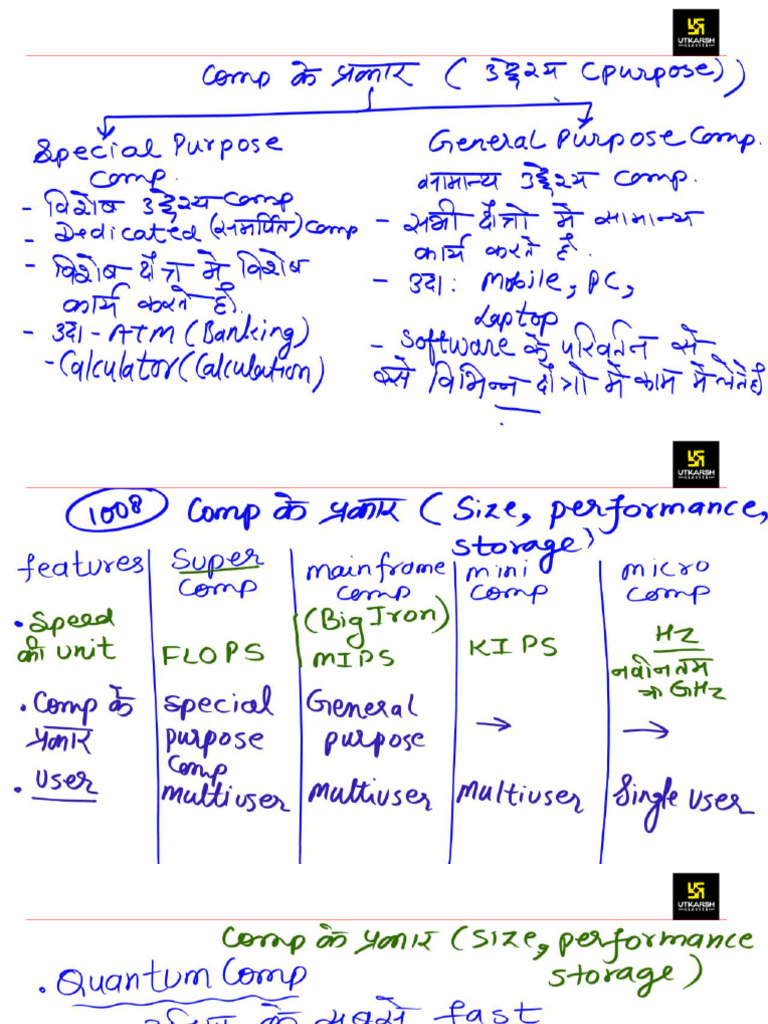 UTKARSH
CLASSES
Comp के प्रकार ( उद्देश्य (purpose))
Special Purpose
Comp.
- विशेष उद्देश्य comp
- Dedicated (समर्पित) comp
- विशेष क्षेत्र में विशेष
कार्य करते है।
- उदा - ATM (Banking)
- Calculator (Calculation)
General Purpose Comp.
सामान्य उद्देश्य comp.
- सभी क्षेत्रो मे सामान्य
कार्य करते है.
- उदा: Mobile, PC,
Laptop
- Software के परिवर्तन से
इसे विभिन्न क्षेत्रो में काम मे लेते है
UTKARSH
CLASSES
1008 Comp के प्रकार ( Size, performance,
storage)
features Super comp mainframe comp mini comp micro comp
(Big Iron)
• Speed की unit FLOPS MIPS KIPS HZ नवीनतम → GHz
• Comp के प्रकार special purpose comp General purpose → →
• User multiuser multiuser multiuser Single user
UTKARSH
CLASSES
Comp के प्रकार (Size, performance
storage)
• Quantum Comp
के सबसे fast